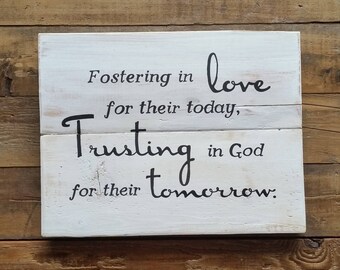 Fostering in love
for their today,
Trusting in God
for their tomorrow.